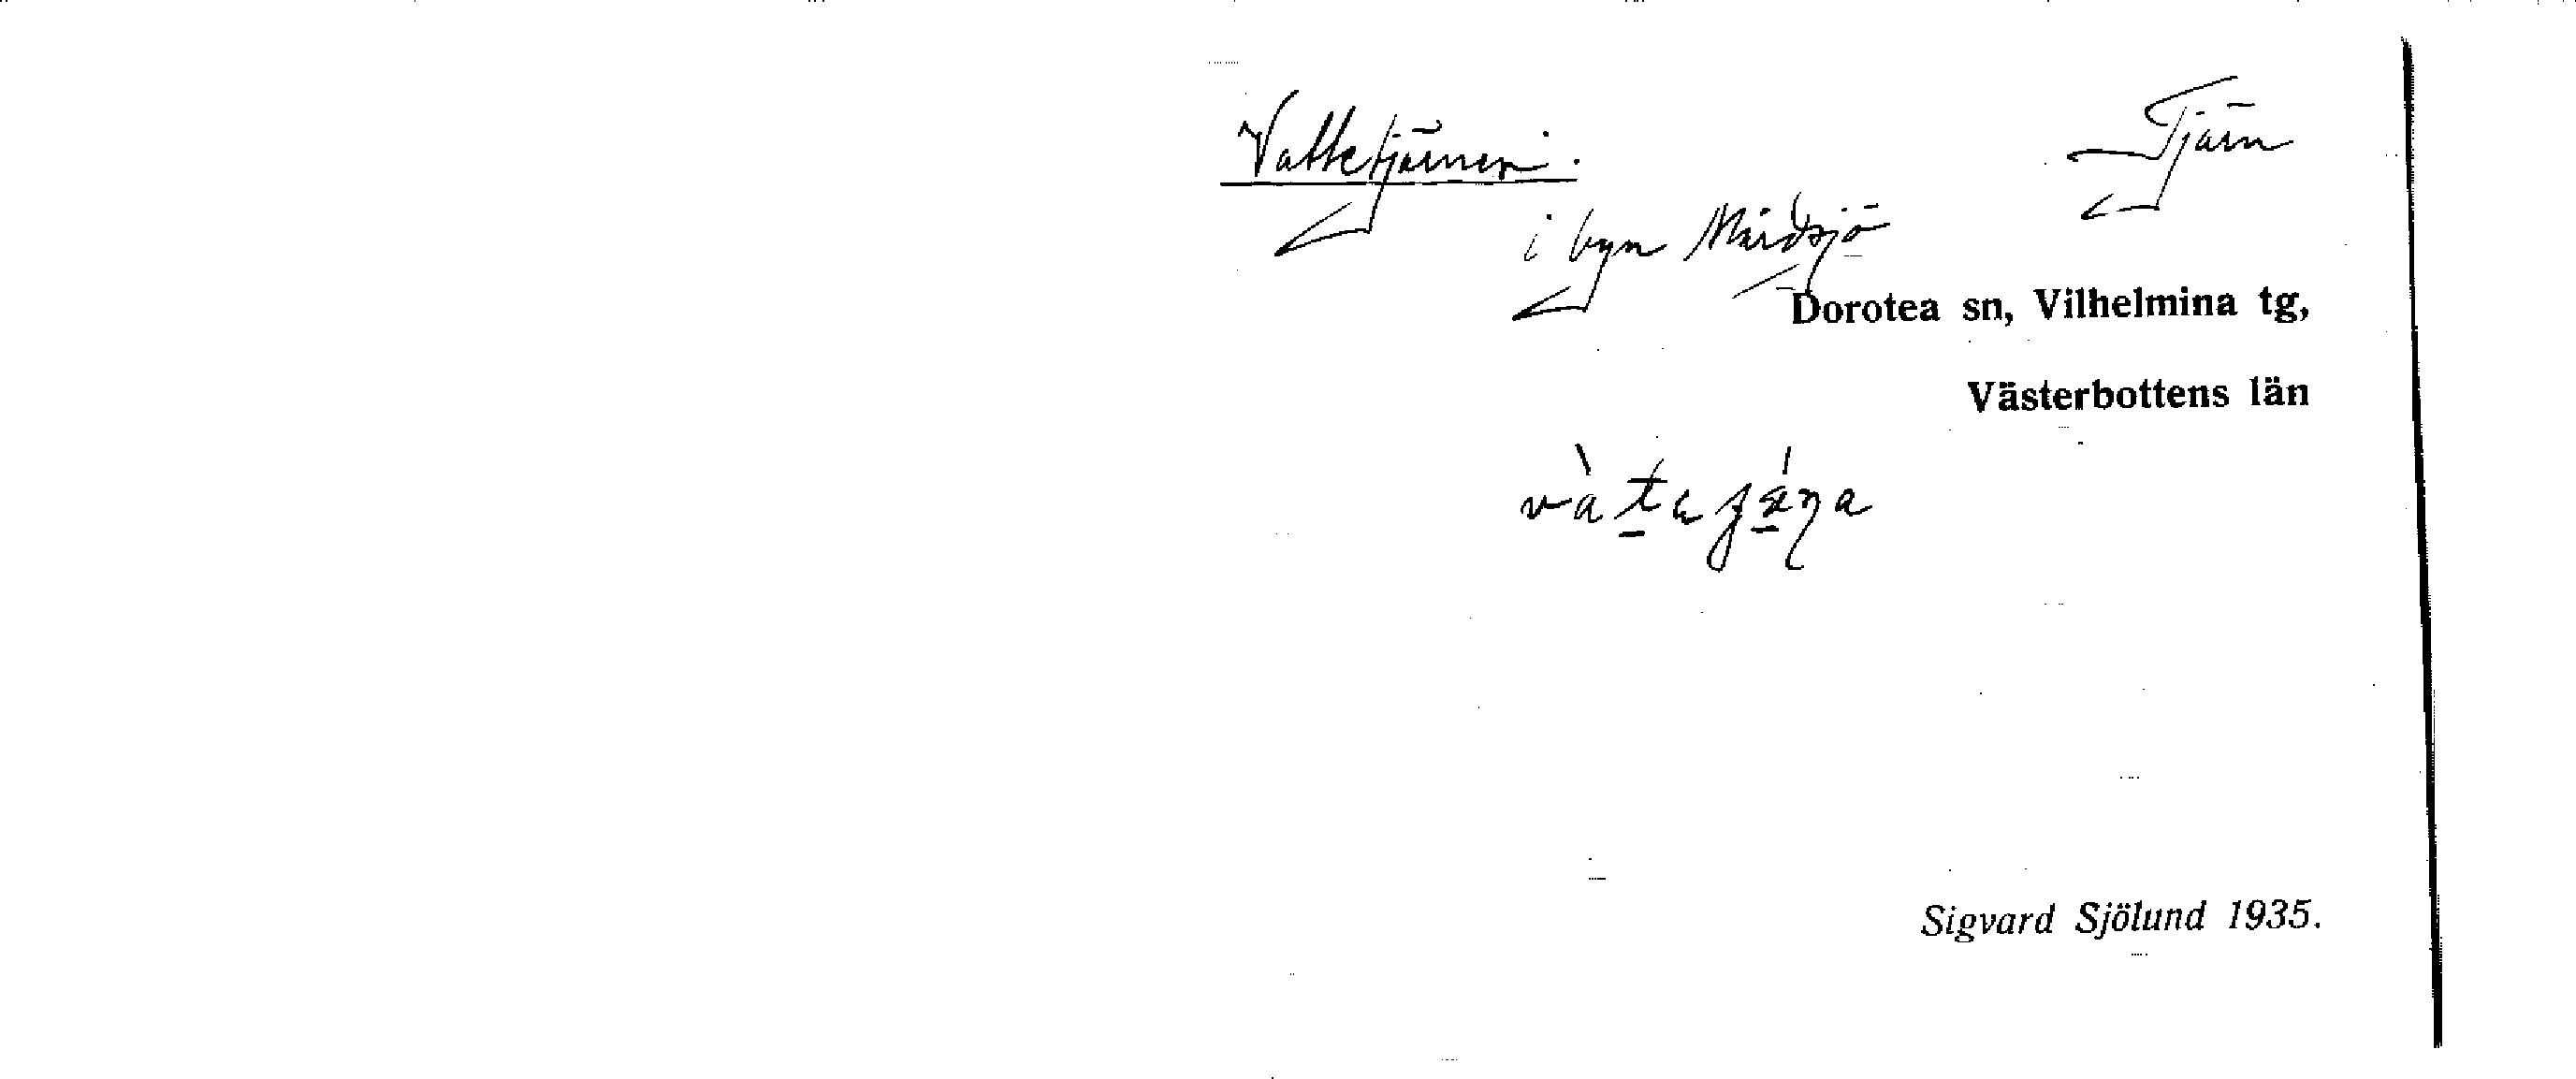 Vattetjärnen. Tjärn
i byn Mårdsjö
Dorotea sn, Vilhelmina tg,
Västerbottens län
Sigvard Sjölund 1935.